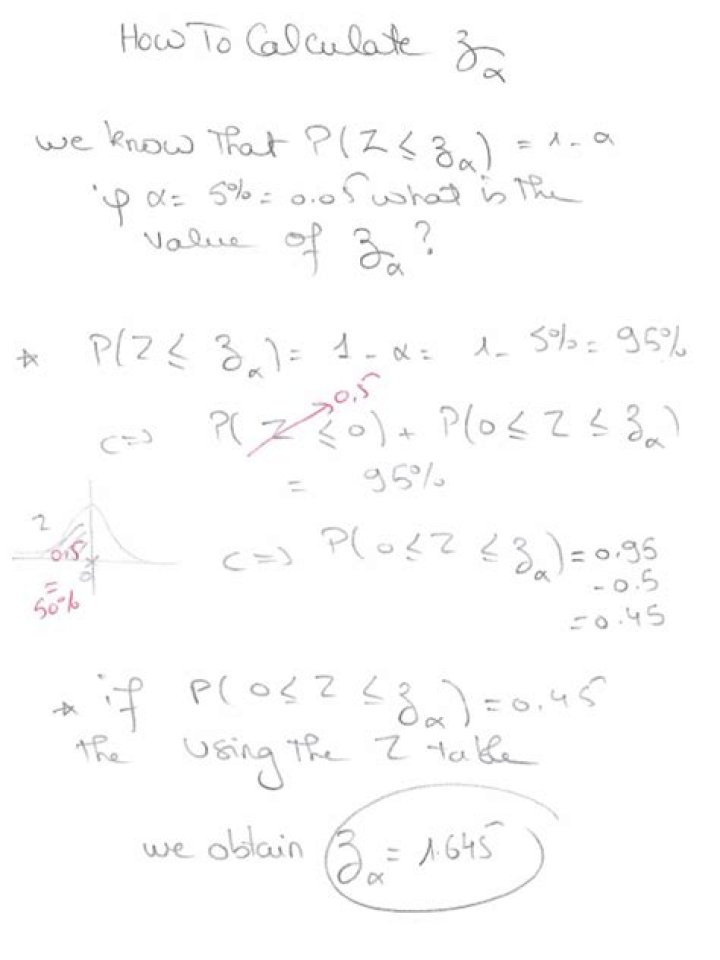 How To Calculate z_α
we know that P(Z ≤ z_α) = 1 - α
if α = 5% = 0.05 what is the
value of z_α ?
* P(Z ≤ z_α) = 1 - α = 1 - 5% = 95%
0,5
<=> P(Z ≤ 0) + P(0 ≤ Z ≤ z_α)
= 95%
Z
0,5
0
=
50%
<=> P(0 ≤ Z ≤ z_α) = 0.95
- 0.5
= 0.45
* if P(0 ≤ Z ≤ z_α) = 0.45
the using the Z table
we obtain z_α = 1.645